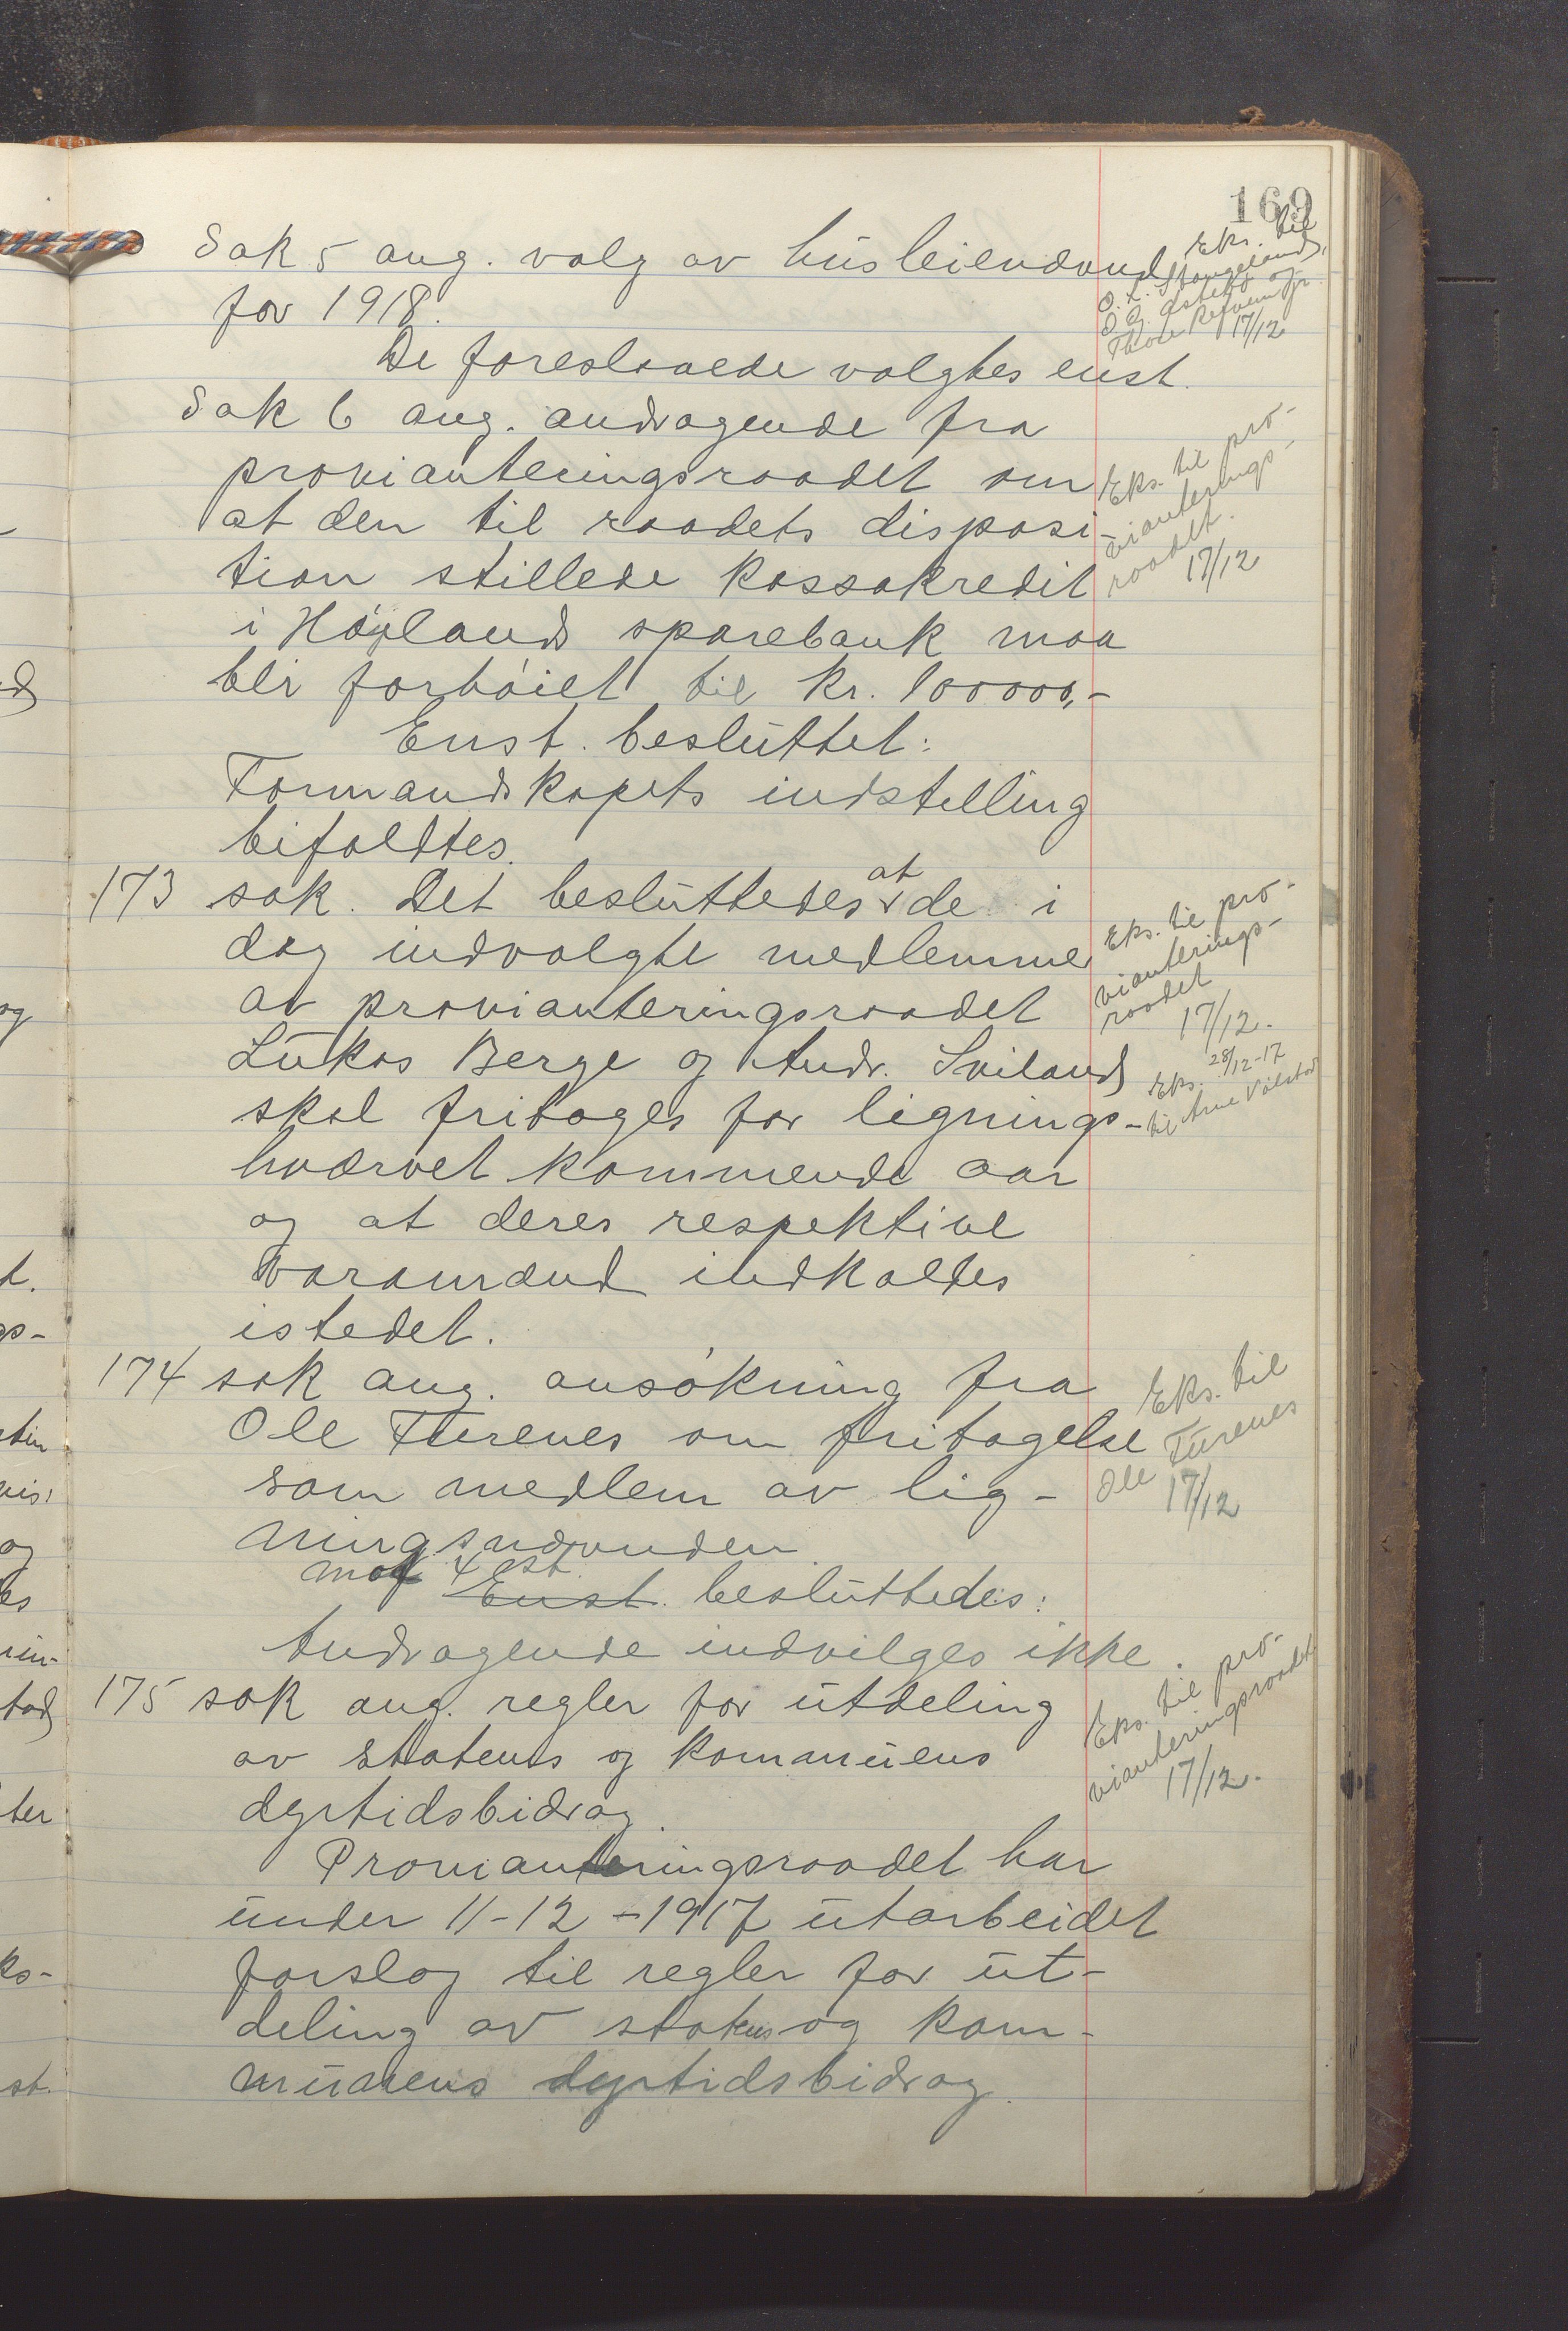 169
Sak 5 ang. valg av husleienævnd
for 1918.
De foreslaaede valgtes enst.
Eks. til
O. L. Stangeland,
17/12
Sak 6 ang. andragende fra
provianteringsraadet om
at den til raadets disposi-
tion stillede kassakredit
i Høyland sparebank maa
bli forhøiet til kr. 100000,-
Enst. besluttet:
Formandskapets indstilling
bifaldtes.
Eks. til pro-
vianterings-
raadet.
17/12
173 sak. Det besluttedes at de i
dag indvalgte medlemmer
av provianteringsraadet
Lukas Berge og Andr. Sviland
skal fritages for lignings-
hvervet kommende aar
og at deres respektive
varamænd indkaldes
istedet.
Eks. til pro-
vianterings-
raadet
17/12.
28/12-17
Eks.
til Arne Vålstad
174 sak ang. ansøkning fra
Ole Furenes om fritagelse
som medlem av lig-
ningsnævnden.
mot 4 st.
Enst. besluttedes:
Andragende indvilges ikke.
Eks. til
Ole Furenes
17/12
175 sak ang. regler for utdeling
av statens og kommunens
dyrtidsbidrag.
Provianteringsraadet har
under 11-12-1917 utarbeidet
forslag til regler for ut-
deling av statens og kom-
munens dyrtidsbidrag.
Eks. til pro-
vianteringsraadet
17/12.